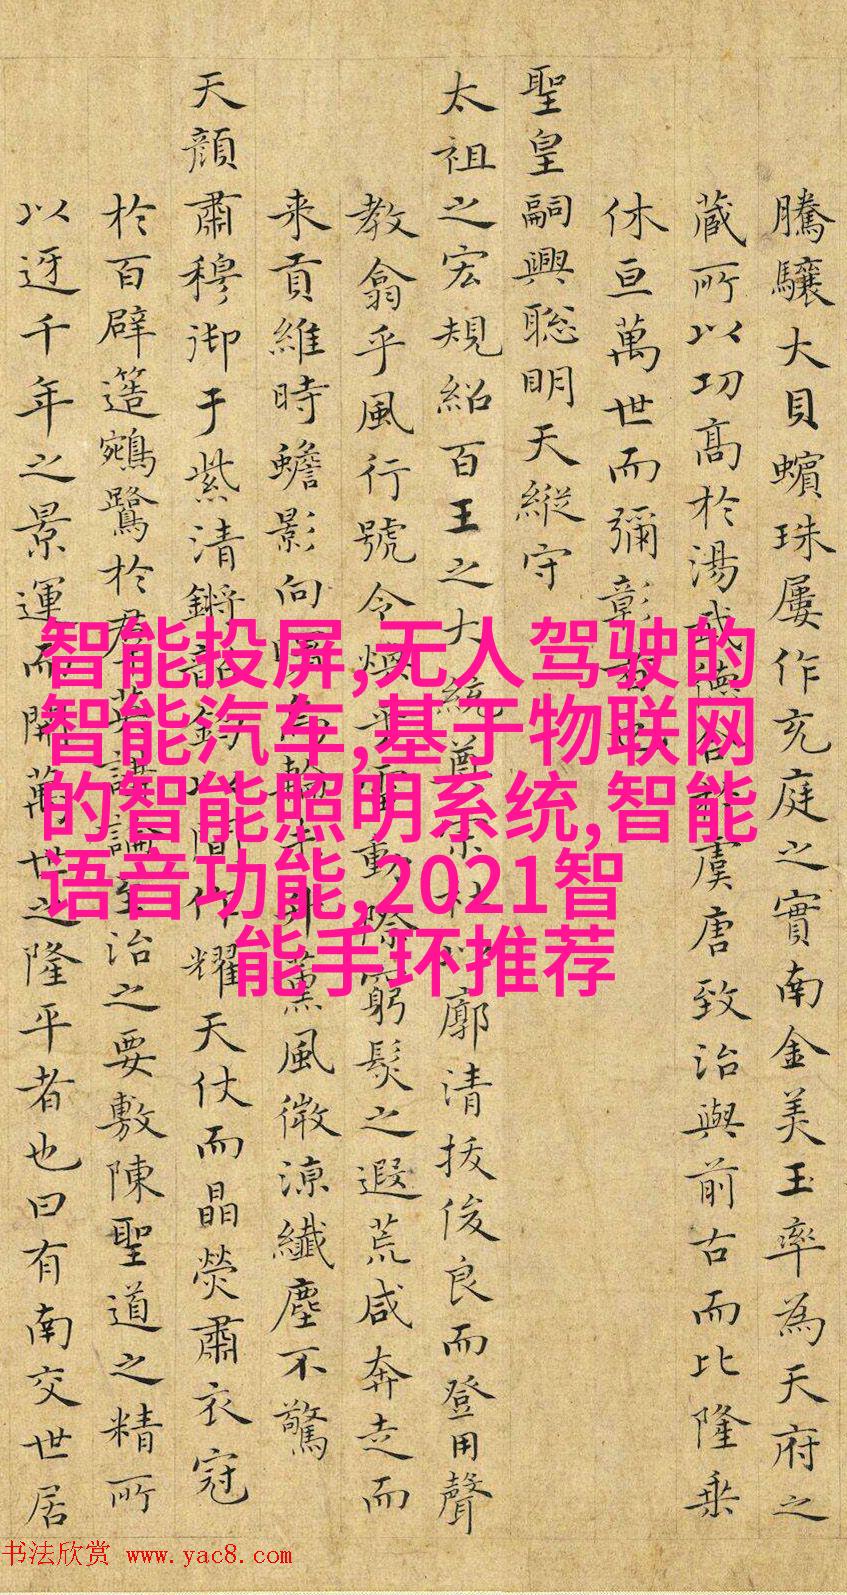 騰驤大貝蠙珠屢作充庭之實南金美玉率為天府之
蔵所以功髙於湯武德
虞唐致治與前古而比隆乗
休亘萬世而彌彰
聖皇嗣興聡明天縦守
太祖之宏規紹百王之大統
廓清拔俊良而登用聲
教翕乎風行號令煥乎雷動際窮髮之遐荒咸奔走而
来貢維時蟾影向
薰風微涼纎塵不驚
天顔肅穆御于紫清鏘韶鈞以間作耀天仗而晶熒肅衣冠
於百辟簉鵷鷺於君英講論至治之要敷陳聖道之精所
以迓千年之景運而開萬世之隆平者也曰有南交世居
智能投屏,无人驾驶的
智能汽车,基于物联网
的智能照明系统,智能
语音功能,2021智
能手环推荐
书法欣赏 www.yac8.com